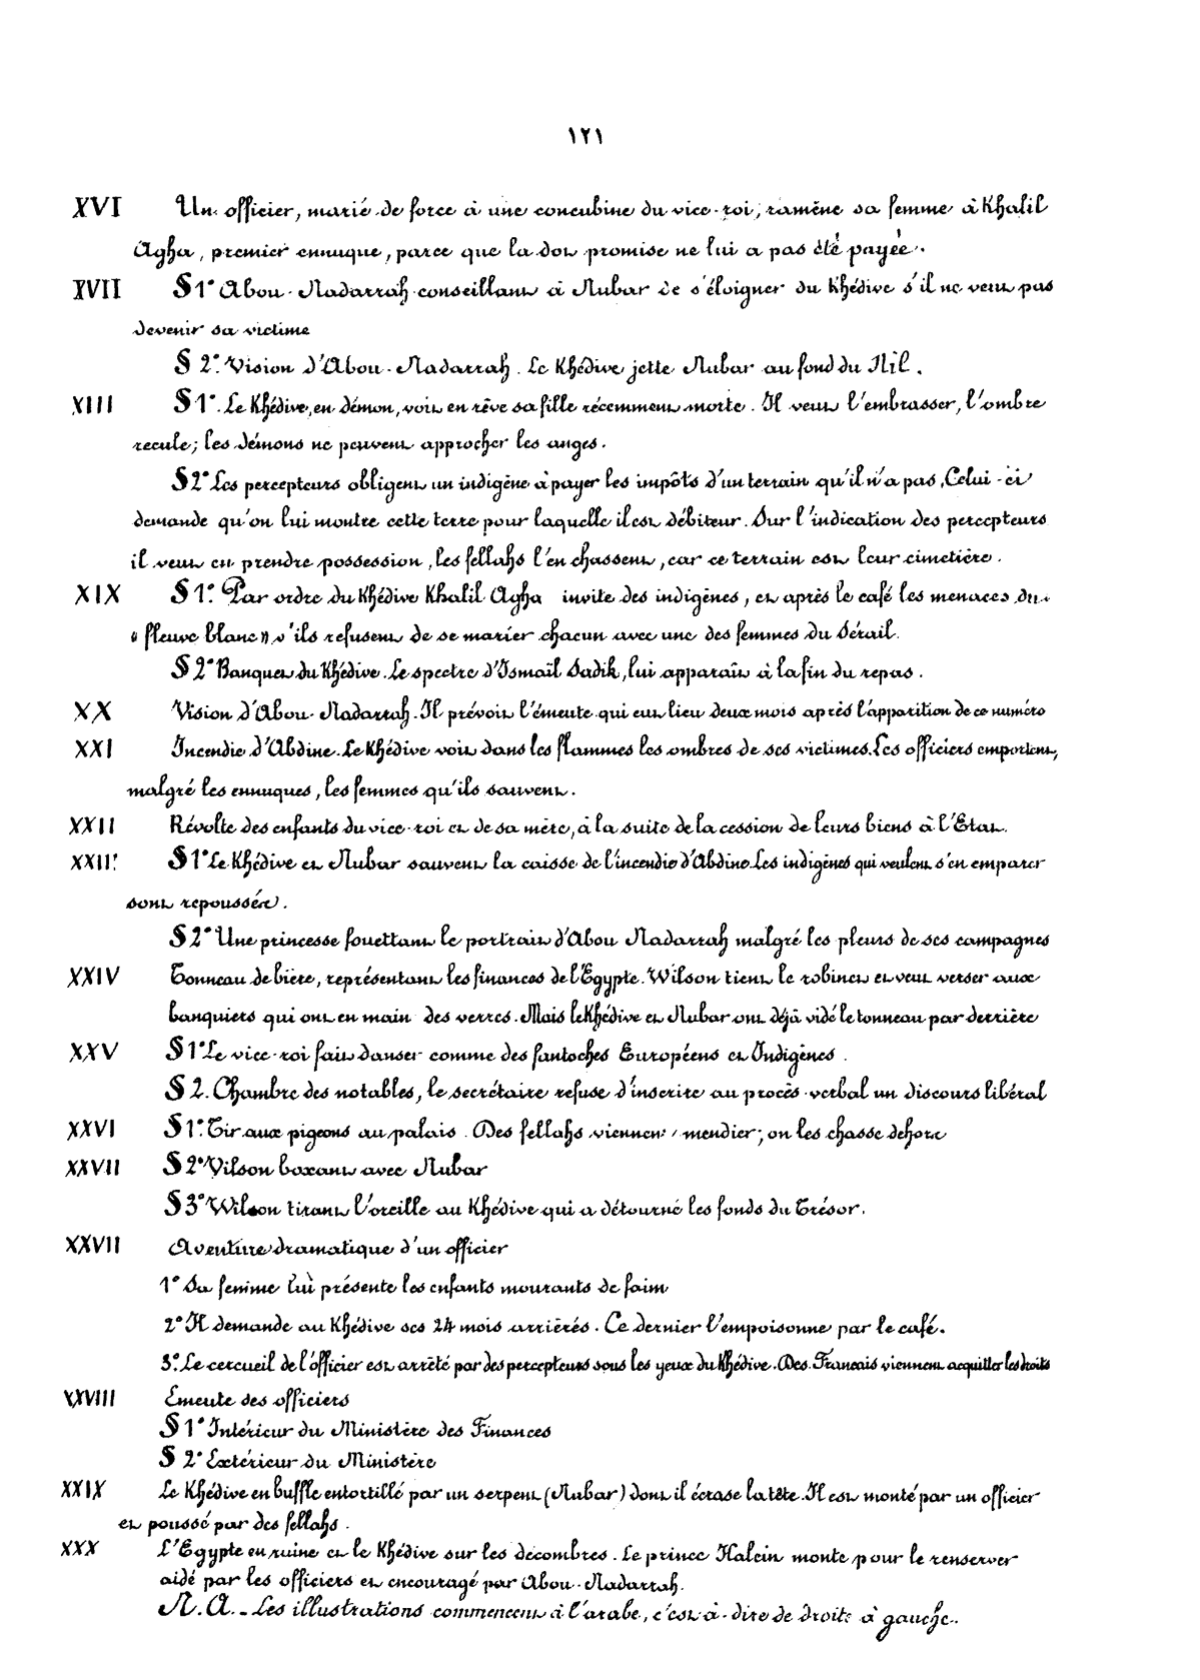 ١٢١
XVI Un officier, marié de force à une concubine du vice-roi, ramène sa femme à Khalil
Agha, premier ennuque, parce que la dot promise ne lui a pas été payée.
XVII §1° Abou-Nadarrah conseillant à Nubar de s'éloigner du Khédive s'il ne veut pas
devenir sa victime
§ 2° Vision d'Abou-Nadarrah. Le Khédive jette Nubar au fond du Nil.
XIII §1°. Le Khédive, en démon, voit en rêve sa fille récemment morte. Il veut l'embrasser, l'ombre
recule; les démons ne peuvent approcher les anges.
§2° Les percepteurs obligent un indigène à payer les impôts d'un terrain qu'il n'a pas. Celui-ci
demande qu'on lui montre cette terre pour laquelle il est débiteur. Sur l'indication des percepteurs
il veut en prendre possession, les fellahs l'en chassent, car ce terrain est leur cimetière.
XIX §1° Par ordre du Khédive Khalil Agha invite des indigènes, et après le café les menaces du
« fleuve blanc » s'ils refusent de se marier chacun avec une des femmes du Sérail.
§2° Banquet du Khédive. Le spectre d'Ismaïl Sadik, lui apparaît à la fin du repas.
XX Vision d'Abou-Nadarrah. Il prévoit l'émeute qui eut lieu deux mois après l'apparition de ce numéro
XXI Incendie d'Abdine. Le Khédive voit dans les flammes les ombres de ses victimes. Les officiers emportent,
malgré les ennuques, les femmes qu'ils sauvent.
XXII Révolte des enfants du vice-roi et de sa mère, à la suite de la cession de leurs biens à l'Etat.
XXIII §1° Le Khédive et Nubar sauvent la caisse de l'incendie d'Abdine. Les indigènes qui veulent s'en emparer
sont repoussés.
§2° Une princesse fouettant le portrait d'Abou Nadarrah malgré les pleurs de ses campagnes
XXIV Tonneau de bière, représentant les finances de l'Egypte. Wilson tient le robinet et veut verser aux
banquiers qui ont en main des verres. Mais le Khédive et Nubar ont déjà vidé le tonneau par derrière
XXV §1° Le vice-roi fait danser comme des fantoches Européens et Indigènes.
§ 2. Chambre des notables, le secrétaire refuse d'inscrire au procès-verbal un discours libéral
XXVI §1° Tir aux pigeons au palais. Des fellahs viennent mendier; on les chasse dehors
XXVII §2° Vilson boxant avec Nubar
§3° Wilson tirant l'oreille au Khédive qui a détourné les fonds du Trésor.
XXVII Aventure dramatique d'un officier
1° Sa femme lui présente les enfants mourants de faim
2° Il demande au Khédive ses 24 mois arriérés. Ce dernier l'empoisonne par le café.
3° Le cercueil de l'officier est arrêté par des percepteurs sous les yeux du Khédive. Des Francais viennent acquitter les droits
XXVIII Emeute des officiers
§1° Intérieur du Ministère des Finances
§ 2° Extérieur du Ministère
XXIX Le Khédive en buffle entortillé par un serpent (Nubar) dont il écrase la tête. Il est monté par un officier
et poussé par des fellahs.
XXX L'Egypte en ruine et le Khédive sur les décombres. Le prince Halein monte pour le renserver
aidé par les officiers et encouragé par Abou-Nadarrah.
N.A.- Les illustrations commencent à l'arabe, c'est-à-dire de droite à gauche.